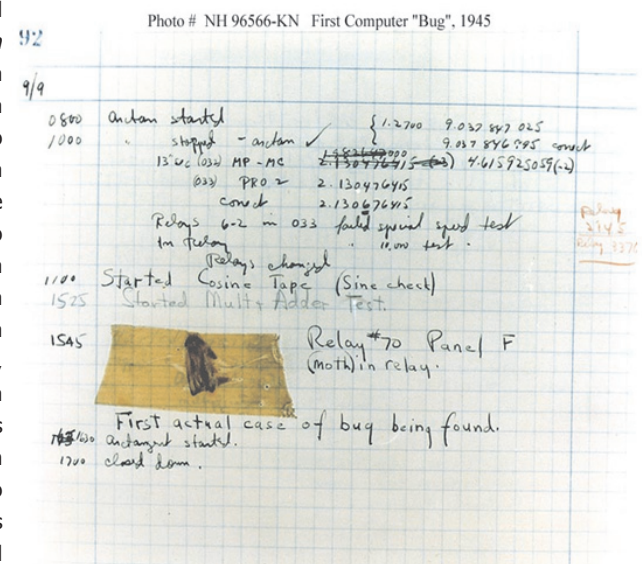 Photo # NH 96566-KN First Computer "Bug", 1945
92
9/9
0800 Antan started
1000 " stopped - antan ✓ { 1.2700 9.037 847 025
9.037 846 995 conect
13"uc (032) MP-MC 2.130476415 (-3) 4.615925059(-2)
(033) PRO 2 2.130476415
conect 2.130676415
Relays 6-2 in 033 failed special speed test
In Relay " 10.000 test.
Relays changed
Relay
2145
Relay 3370
1100 Started Cosine Tape (Sine check)
1525 Started Mult+Adder Test.
1545 Relay #70 Panel F
(moth) in relay.
First actual case of bug being found.
1630 antangent started.
1700 closed down.